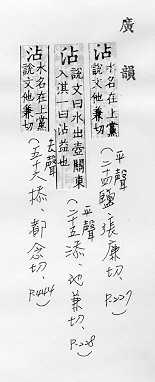 廣韻
沾 水名在上黨
說文他兼切
(平聲
二十四鹽、張廉切、P.227)
沾 說文曰水出壺關東
入淇一曰沾益也
(平聲
二十五添、他兼切、P.228)
沾 水名在上黨
說文他兼切
(去聲
五十六㮇、都念切、P.444)